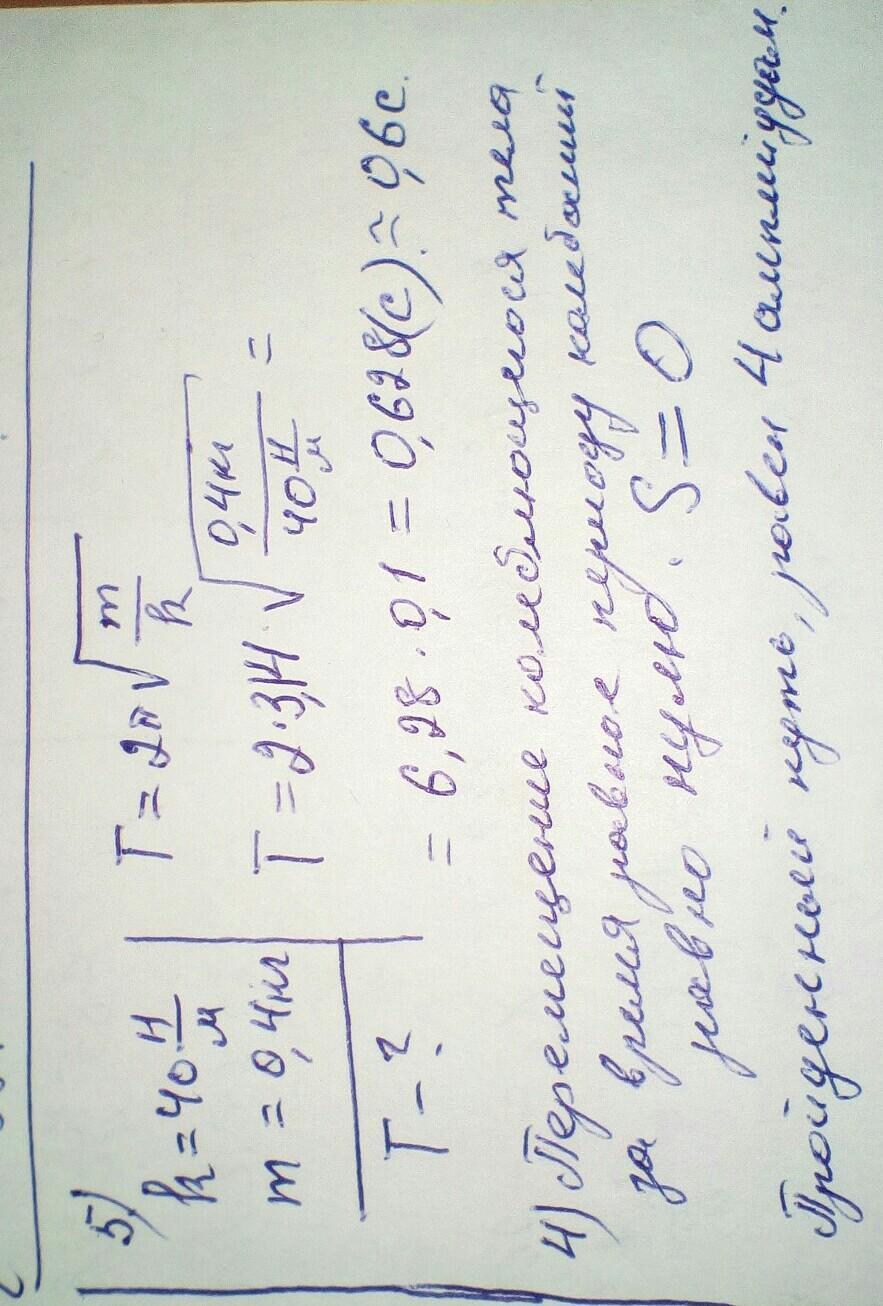 5)
k = 40 Н/м
m = 0,4кг
T - ?
T = 2π √(m/k)
T = 2·3,14 · √(0,4кг / 40 Н/м) =
= 6,28 · 0,1 = 0,628(с) ≈ 0,6с.
4) Перемещение колеблющегося тела
за время равное периоду колебаний
равно нулю. S = 0
Пройденный путь, равен 4 амплитудам.